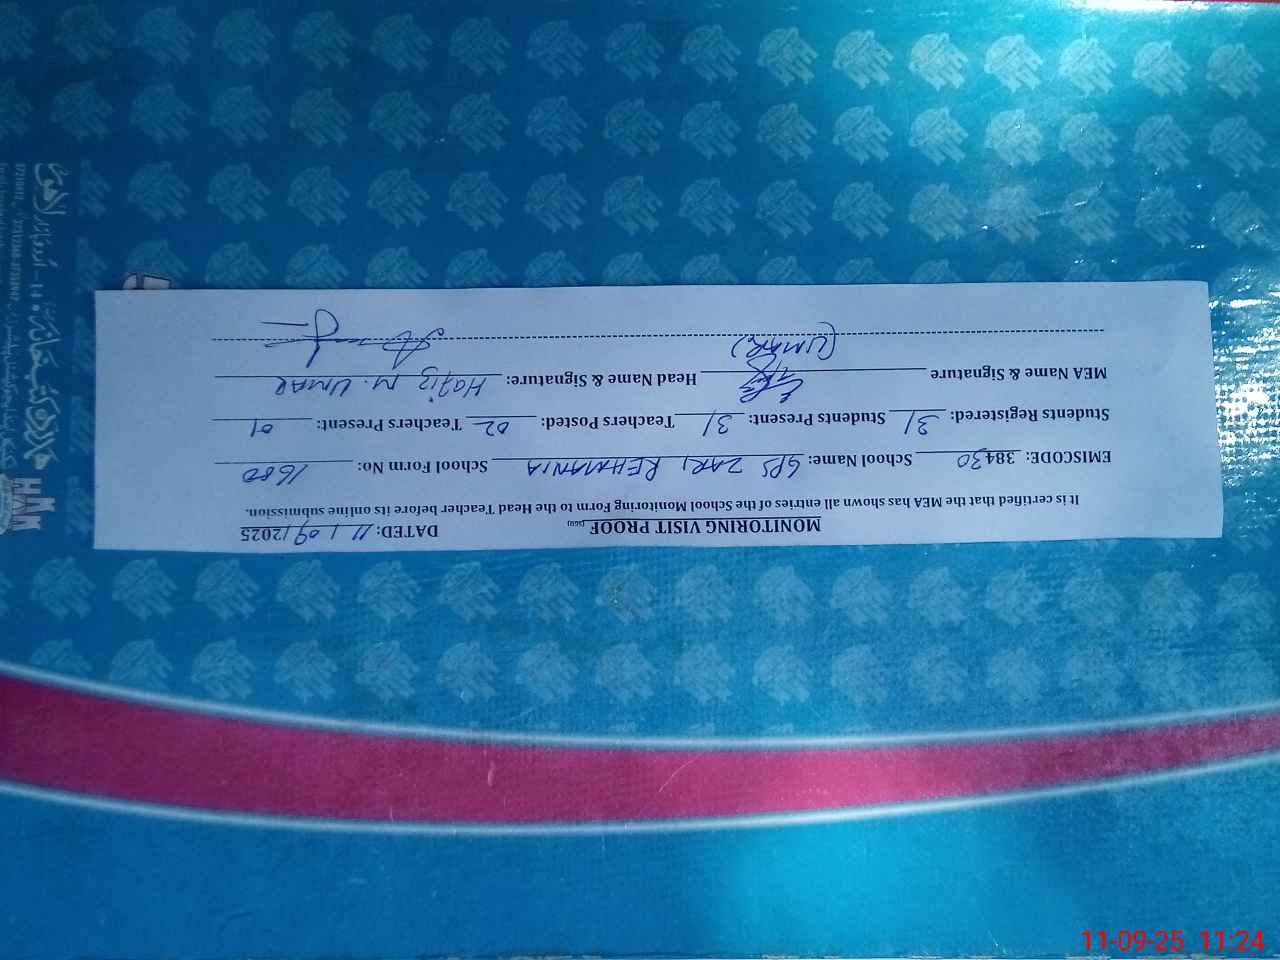 MONITORING VISIT PROOF DATED: 11/09/2025
It is certified that the MEA has shown all entries of the School Monitoring Form to the Head Teacher before its online submission.
EMISCODE: 38430 School Name: GPS ZARI REHMANIA School Form No: 1680
Students Registered: 31 Students Present: 31 Teachers Posted: 02 Teachers Present: 01
MEA Name & Signature Head Name & Signature: Hafiz M. UMAR
(UMAR)
11-09-25 11:24